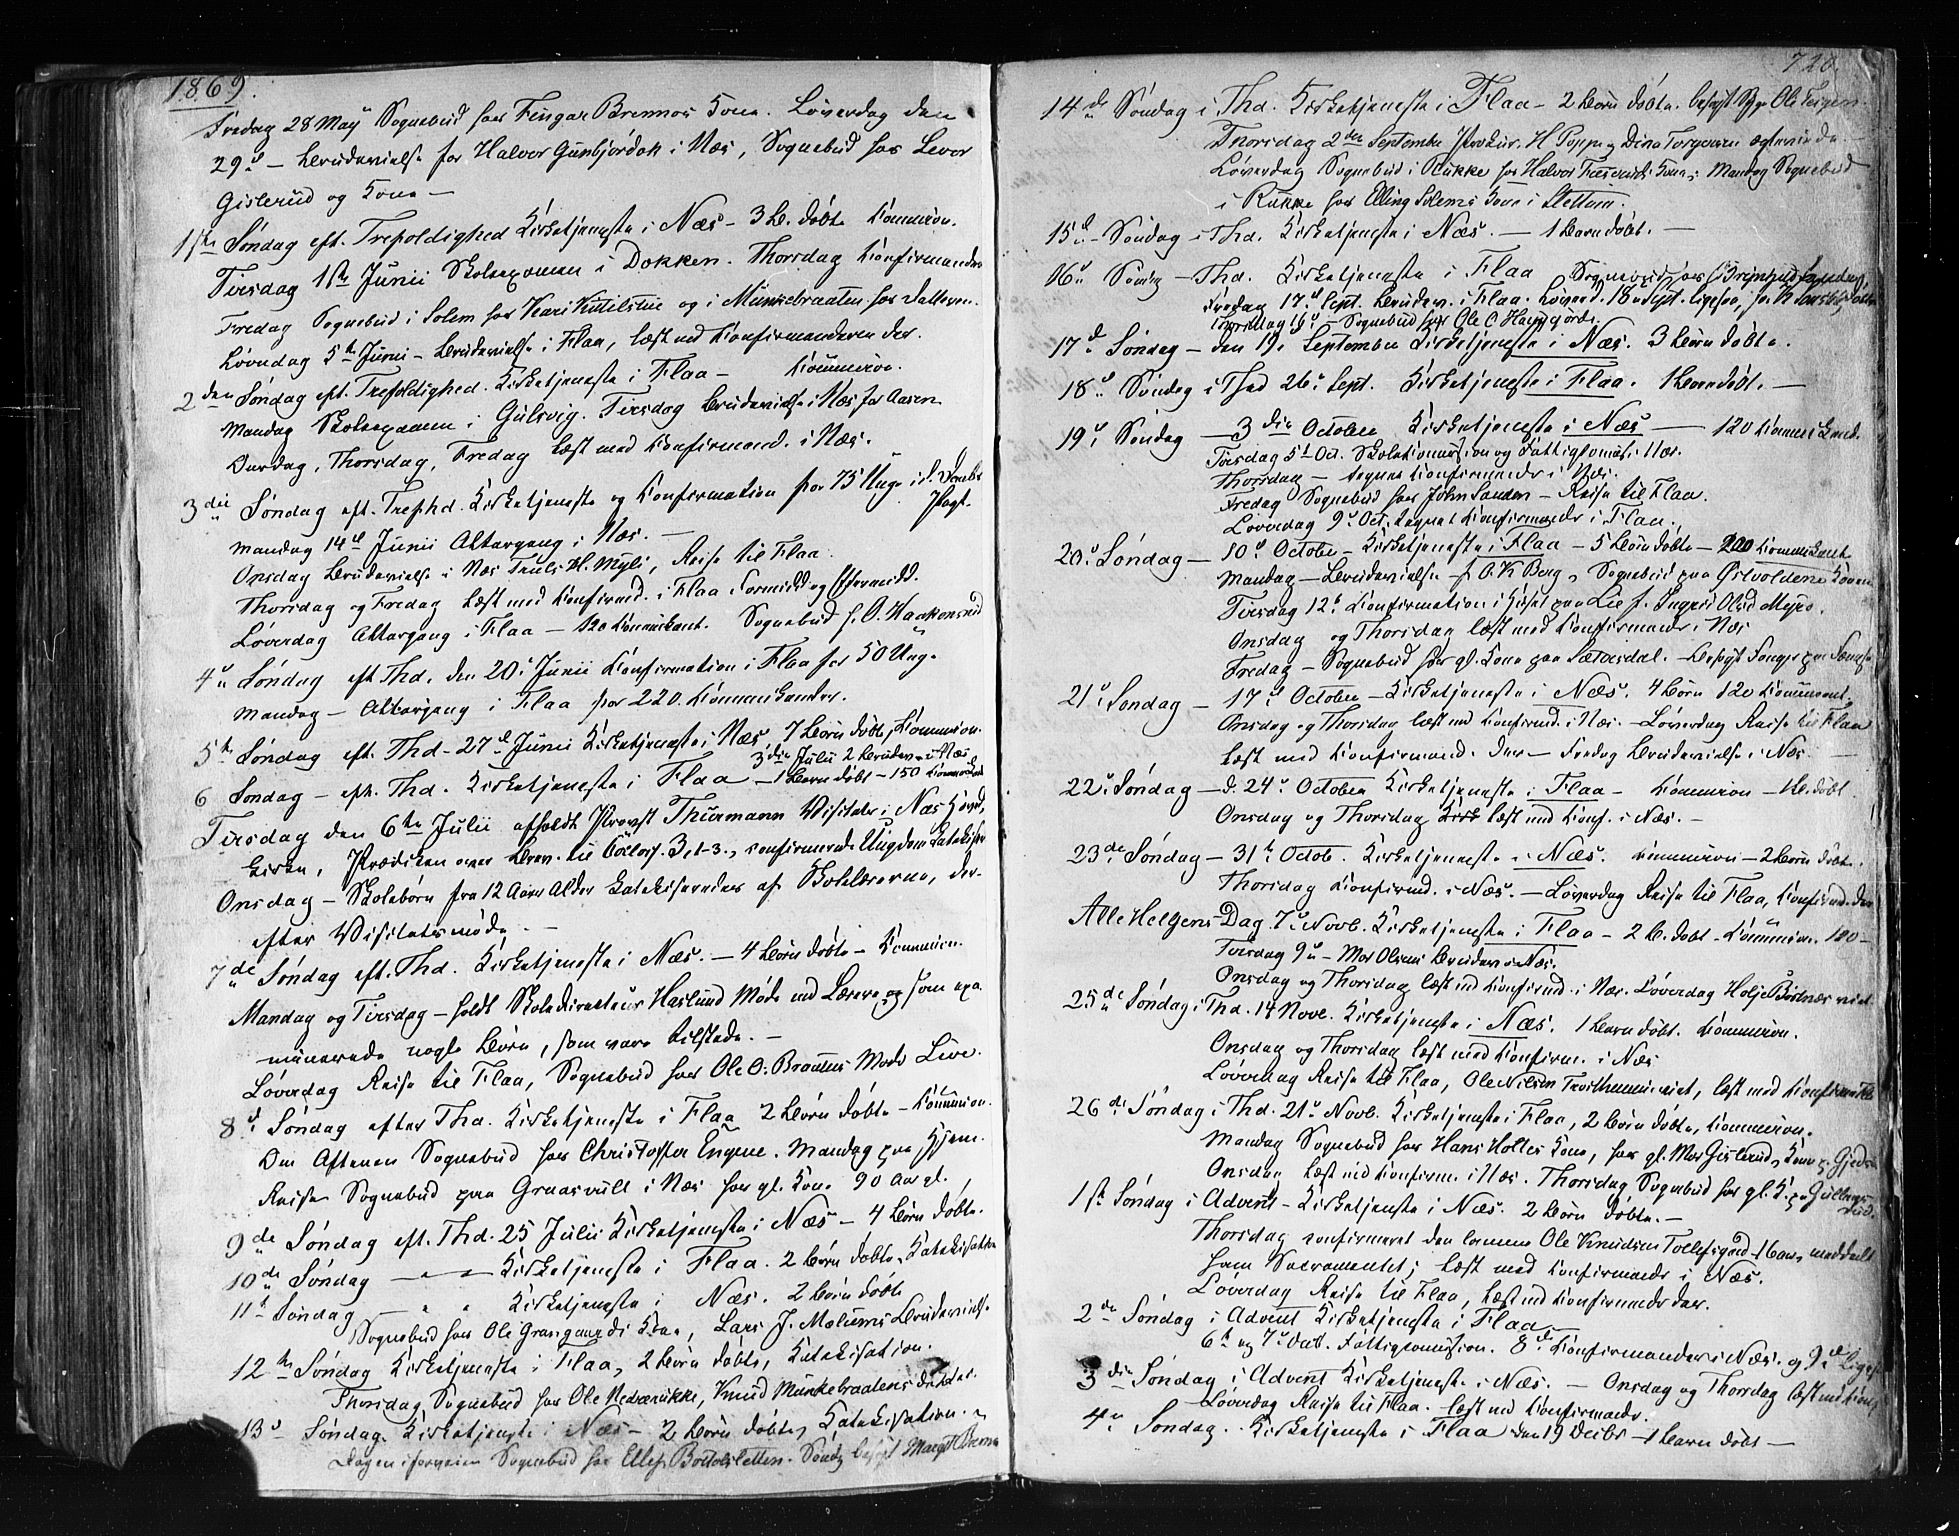 1869.
Fredag 28 May Sognebud hos Fingar Bremnos Kone. Løverdag den
29de — Brudevielse for Halvor Gunbjørdok i Næs, Sognebud hos Levor
Gislerud og Kone —
1ste Søndag eft. Trefoldighed Kirketjeneste i Næs — 3 B. døbte Kommunion.
Tirsdag 1ste Junii Skoleexamen i Dokken. Thorsdag Konfirmander
Fredag Sognebud i Solem hos Kari Kittilstue og i Munkebraaten hos
Løverdag 5te Junii — Brudevielse i Flaa, læst med Konfirmanderne der.
2den Søndag eft. Trefoldighed. Kirketjeneste i Flaa — Kommunion.
Mandag Skoleexamen i Gulsvig. Tirsdag Brudevielse i Næs for Aasen
Onsdag, Thorsdag, Fredag læst med Konfirmand. i Næs.
3die Søndag eft. Trefhd. Kirketjeneste og Konfirmation for 75 Unge i
Pagt.
Mandag 14de Junii Altergang i Næs. —
Onsdag Brudevielse i Næs Truls H. Myli, Reise til Flaa.
Thorsdag og Fredag læst med Konfirmd. i Flaa Formidd og Eftermidd.
Løverdag Altergang i Flaa — 120 Kommunikant. Sognebud f. O. Haakensrud
4de Søndag eft Thd. den 20de Junii Konfirmation i Flaa for 50 Ung.
Mandag — Altergang i Flaa for 220. Kommunikanter.
5te Søndag eft. Thd. 27de Junii Kirketjeneste i Næs 7 Børn døbt, Kommunion.
3die Julii 2 Brudev. i Næs
6 Søndag — eft. Thd. Kirketjeneste i Flaa — 1 Barn døbt — 150 Kommunikant
Tirsdag den 6te Julii afholdt Provst Thurmann Visitats i Næs Hoved
Kirke, Prædiken over Brev. til Coloss. 3, 1-3., confirmerede Ungdom Katekiser
Onsdag — Skolebørn fra 12 Aars Alder Katekiseredes af Skolelærerne, der-
efter Visitatsmøde. —
7de Søndag eft. Thd. Kirketjeneste i Næs. — 4 Børn døbte — Kommunion.
Mandag og Tirsdag — holdt Skoledirecteur Haslund Møde med Lærere, og som exa
minerede nogle Børn, som vare tilstede. —
Løverdag Reise til Flaa, Sognebud hos Ole O. Braatens Moder Live.
8de Søndag efter Thd. Kirketjeneste i Flaa 2 Børn døbte — Kommunion.
Om Aftenen Sognebud hos Christopher Engene. Mandag paa Hjem.
Reisen Sognebud paa Graasvull i Næs hos gl. Kone 90 Aar gl.
9de Søndag eft. Thd. 25 Julii Kirketjeneste i Næs — 4 Børn døbte.
10de Søndag — " — Kirketjeneste i Flaa. 2 Børn døbte, Katekisation
11te Søndag — " " Kirketjeneste i Næs. 2 Børn døbt
Sognebud hos Ole Grangaards Kone, Lars J. Molums Brudevielse
12te Søndag Kirketjeneste i Flaa, 2 Børn døbte, Katekisation.
Thorsdag Sognebud hos Ole Nedrerukke, Knud Munkebraatens Datter.
13de Søndag. Kirketjeneste i Næs — 2 Børn døbte, Katekisation.
Dagen i forveien Sognebud hos Ellef Bottolsletten. Søndg besøgt Margit Bremo
720.
14de Søndag i Thd. Kirketjeneste i Flaa — 2 Børn døbte. besøgt Syge Ole
Thorsdag 2den September Prokur. H Poppe & Dina Torgersen ægteviede
Løverdag Sognebud i Rukke hos Halvor Kone, Mandag Sognebud
i Rukke hos Elling Solems Kone i Slettum.
15de — Søndag i Thd. Kirketjeneste i Næs. — 1 Barn døbt. —
16de Søndg — Thd. Kirketjeneste i Flaa Sognebud hos
Fredag 17de Sept. Brudev. i Flaa. Løverd. 18de Sept. ligesaa,
Torsdag 16de — Sognebud hos Ole O Haugjorde.
17de Søndag — den 19de September Kirketjeneste i Næs. 3 Børn døbte.
18de Søndag i Thd 26de Sept. Kirketjeneste i Flaa. 1 Barn døbt. —
19de Søndag — 3die October Kirketjeneste i Næs — 120 Kommunikand.
Tirsdag 5te Oct. Skolekommission og Fattigkommis. i Næs.
Thorsdag — tegnet Konfirmander i Næs.
Fredag Sognebud hos John Sanden — Reise til Flaa.
Løverdag 9de Oct. tegnet Konfirmander i Flaa.
20de Søndag — 10de October — Kirketjeneste i Flaa — 5 Børn døbte — 200 Kommunikant
Mandag — Brudevielse f O. K Berg, Sognebud paa Østvoldene
Tirsdag 12te Konfirmation i Huset paa Lie f. Ingri Olsd Myro.
Onsdag og Thorsdag læst med Konfirmander i Næs
Fredag — Sognebud hos gl. Kone paa Sætersdal. — besøgt Senger paa
21de Søndag — 17de October — Kirketjeneste i Næs. 4 Børn 120 Kommunikant.
Onsdag og Thorsdag læst med Konfirmd. i Næs. — Løverdag Reise til Flaa
læst med Konfirmand. der — Fredag Brudevielse i Næs —
22de Søndag — d. 24de October Kirketjeneste i Flaa — Kommunion — 1 B. døbt.
Onsdag og Thorsdag læst med Konf. i Næs. —
23de Søndag — 31te Octob. Kirketjeneste i Næs. Kommunion — 2 Børn døbte.
Thorsdag Konfirmd. i Næs. — Løverdag Reise til Flaa, Konfirmd. der
Alle Helgens Dag. 7de Novb. Kirketjeneste i Flaa — 2 B. døbt — Kommunion. 180 —
Tirsdag 9de — Mos Olsens Brudev. i Næs.
Onsdag og Thorsdag læst med Konfirmd. i Næs. Løverdag Holje Børtnæs viet
25de Søndag i Thd. 14 Novb. Kirketjeneste i Næs. 1 Barn døbt. Kommunion.
Onsdag og Thorsdag læst med Konfirm. i Næs
Løverdag Reise til Flaa, Ole Nilsen viet, læst med Konfirmander
26de Søndag i Thd. 21de Novb. Kirketjeneste i Flaa, 2 Børn døbte, Kommunion.
Mandag Sognebud hos Hans Holtes Kone, hos gl. Mor Gislerud, Kone p. Gjeds
Onsdag læst med Konfirm. i Næs. Thorsdag Sognebud hos gl. K. paa Gullings
rud.
1ste Søndag i Advent — Kirketjeneste i Næs. 2 Børn døbte. —
Thorsdag confirmeret den lamme Ole Knudsen Tollefsgard 16 aar, meddeelt
ham Sacramentet; læst med Konfirmander i Næs.
Løverdag Reise til Flaa, læst med Konfirmander der.
2den Søndag i Advent Kirketjeneste i Flaa
6te og 7de Decb. Fattigkommission. 8de Konfirmander i Næs. og 9de Ligesaa
3die Søndag i Advent Kirketjeneste i Næs. — Onsdag og Thorsdag læst med Konf
Løverdag Reise til Flaa. læst med Konfirmander.
4de Søndag. Kirketjeneste i Flaa den 19 Decbr — 1 Barn døbt —